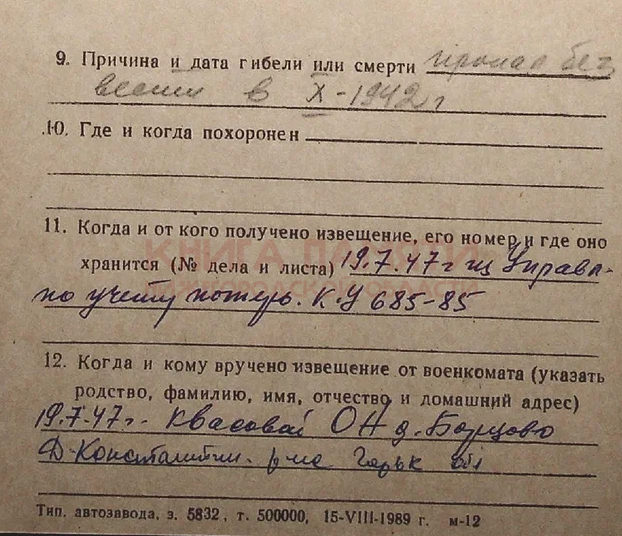 9. Причина и дата гибели или смерти пропал без
вести в X-1942 г
10. Где и когда похоронен
11. Когда и от кого получено извещение, его номер и где оно
хранится (№ дела и листа) 19.7.47 г из Управл-
по учету потерь. К.У 685-85
КНИГА ПАМЯТИ
12. Когда и кому вручено извещение от военкомата (указать
родство, фамилию, имя, отчество и домашний адрес)
19.7.47 г. Квасовой ОН д. Борцово
Д-Константин. р-на Горьк обл
Тип. автозавода, з. 5832, т. 500000, 15-VIII-1989 г. м-12